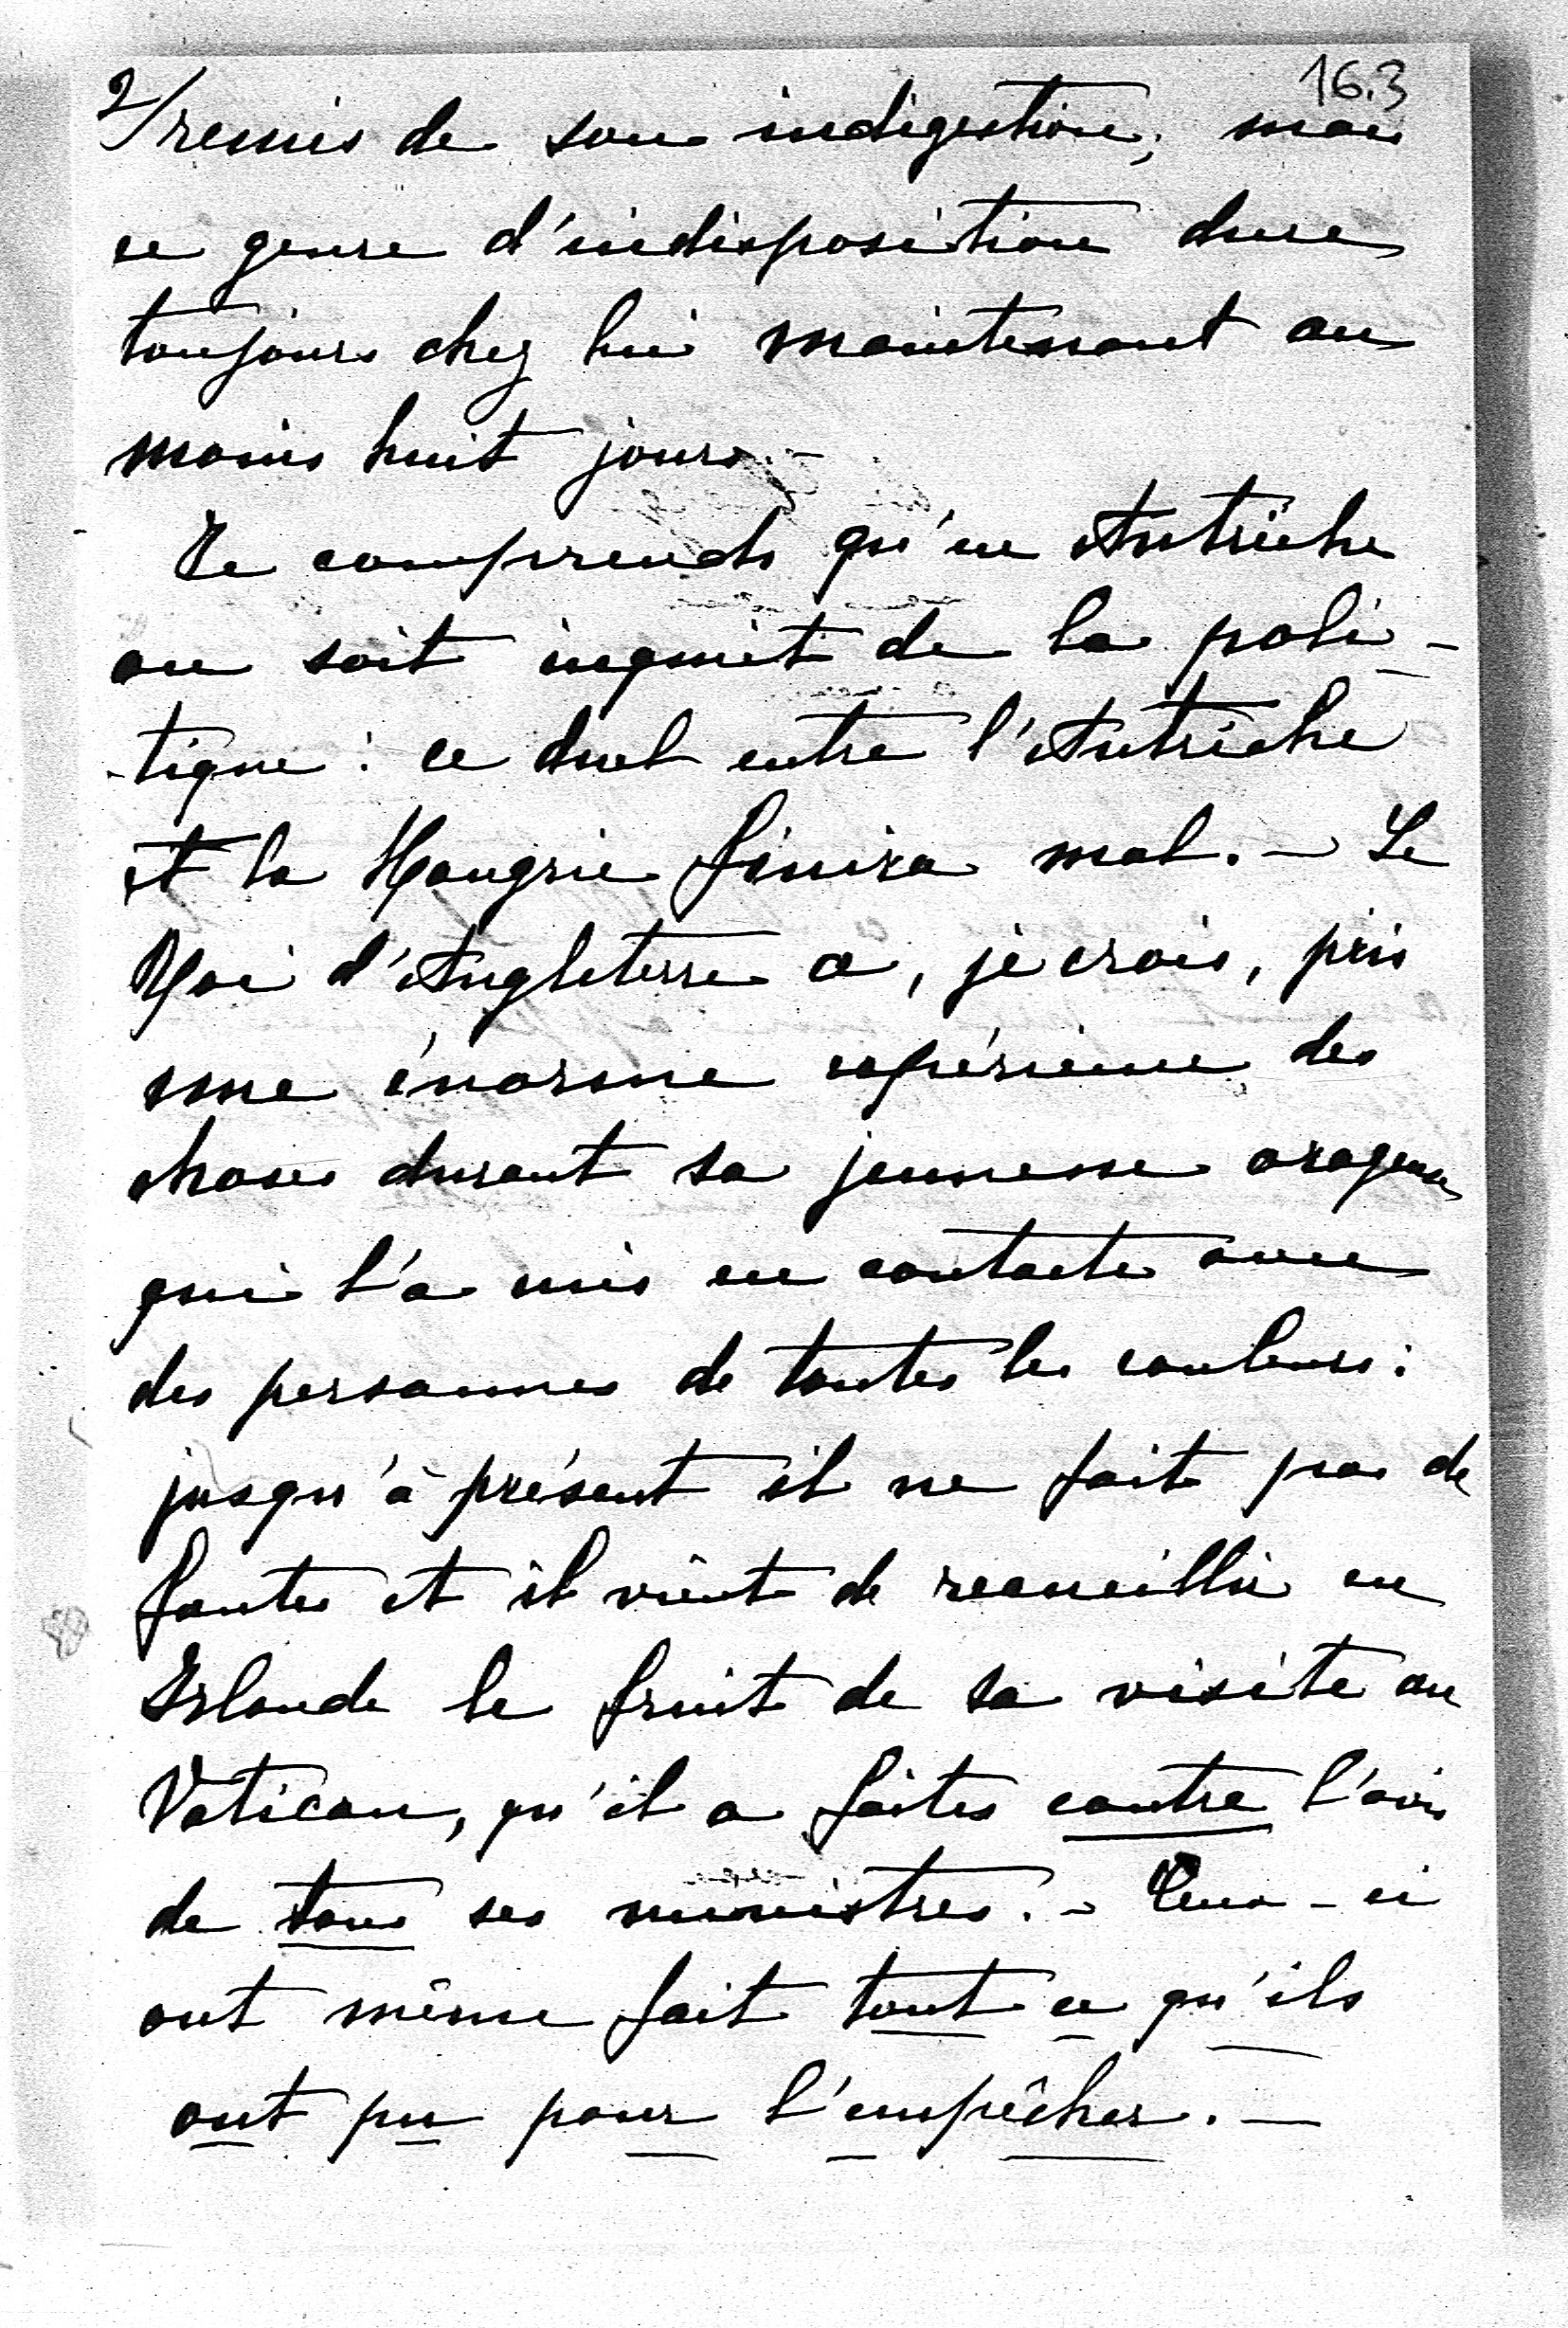 16.3
2/ remis de son indigestion; mais
ce genre d'indisposition dure
toujours chez lui maintenant au
moins huit jours. -
Je comprends qu'en Autriche
on soit inquiet de la poli-
-tique : ce duel entre l'Autriche
et la Hongrie finira mal. - Le
Roi d'Angleterre a, je crois, pris
une énorme expérience des
choses durant sa jeunesse orageuse
qui l'a mis en contacte avec
des personnes de toutes les couleurs :
jusqu'à présent il ne fait pas de
fautes et il vient de recueillir en
Irlande le fruit de sa visite au
Vatican, qu'il a faites contre l'avis
de tous ses ministres. - Ceux-ci
ont même fait tout ce qu'ils
ont pu pour l'empêcher. -